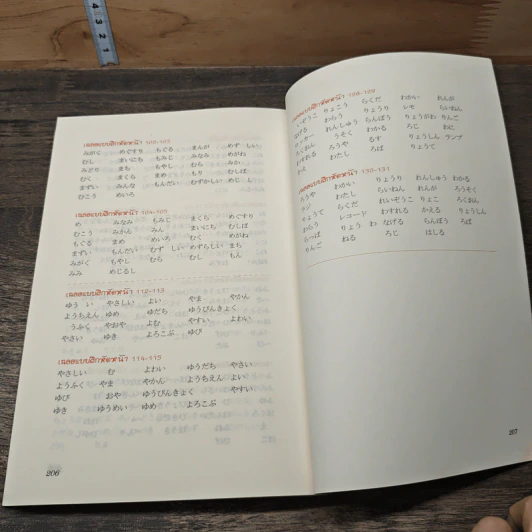 4
3
2
1
เฉลยแบบฝึกหัดหน้า 102-103
みがく めぐすり もぐる まんが めずしい
むし まいにち もみじ みなみ めがね
みどり まち もやし むら みかん
むく まくら まめ もり むしば
まずい みんな もんだい むずかしい めじるし
むこう めいろ
เฉลยแบบฝึกหัดหน้า 104-105
め みなみ もみじ まくら めぐすり
むこう みかん みん まいにち むしば
もぐる まめ めいろ むく めがね
まずい もんだい むずしい めずらしい まち
みがく もやし むら むし もん
みみ めじるし
เฉลยแบบฝึกหัดหน้า 112-113
ゆうい やさしい よい やま やかん
ようちえん ゆめ ゆだち ゆうびんきょく
うふく やおや よむ やすい よわい
やさい ゆき よろこぶ ゆび
เฉลยแบบฝึกหัดหน้า 114-115
やさしい む よわい ゆうだち やさい
ようふく やま やかん ようちえん よい
ゆび おや ゆうびんきょく やすい
ゆき ゆうめい ゆめ よろこぶ
206
เฉลยแบบฝึกหัดหน้า 128-129
いぞうこ りょこう らくだ わかい れんが
わらう りょうり いせ らいねん
なげる れんしゅう らんぼう りょうがわ りんご
ッカー うそく わかる わに
くおん ろうか るす りょうしん ランプ
わすれる わたし ろば りょうて
เฉลยแบบฝึกหัดหน้า 130-131
ろうや わかい りょうり れんしゅう わかる
ラジ わたし らいねん れんが ろうそく
りょうて らくだ れいぞうこ りょこ ろくおん
わらう レコード わすれる かえる りょうしん
らっぱ りょう わ なげる らんぼう ろば
りんご ねる ろじ はしる
207